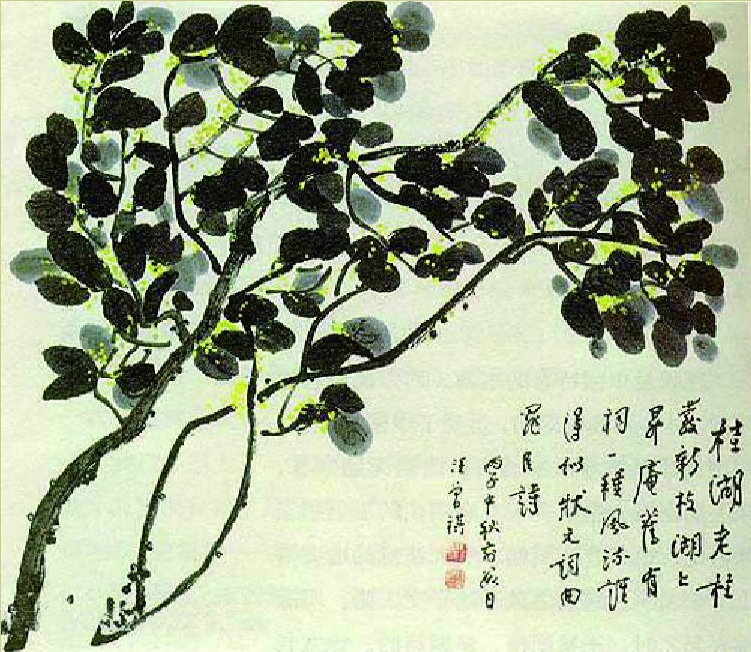 桂湖老桂
發新枝湖上
昇庵舊有
祠一種風流誰
得似狀元詞曲
罪臣詩
丙子中秋前數日
汪曾祺